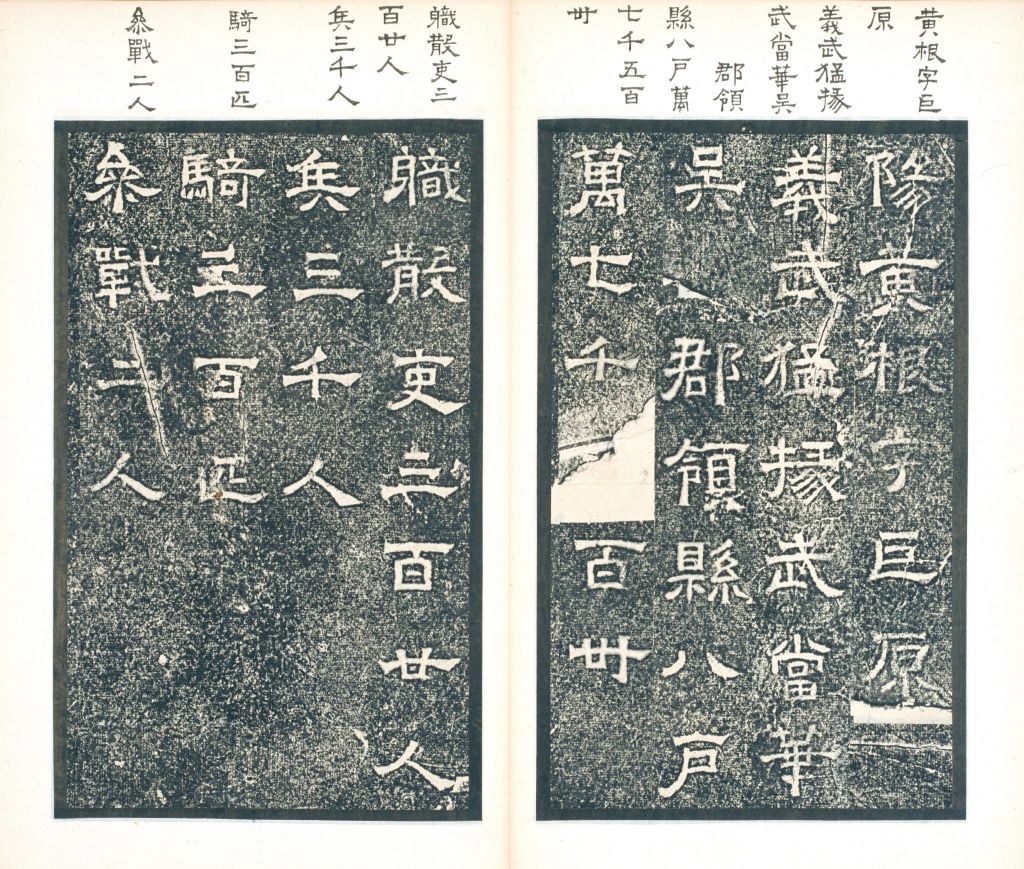 黃根字巨
原
義武猛掾
武當華吳
郡領
縣八戶萬
七千五百
卌
陽黃根字巨原
義武猛掾武當華
吳郡領縣八戶
萬七千百卌
軄散吏三
百廿人
兵三千人
騎三百匹
參戰二人
軄散吏三百廿人
兵三千人
騎三百匹
參戰二人